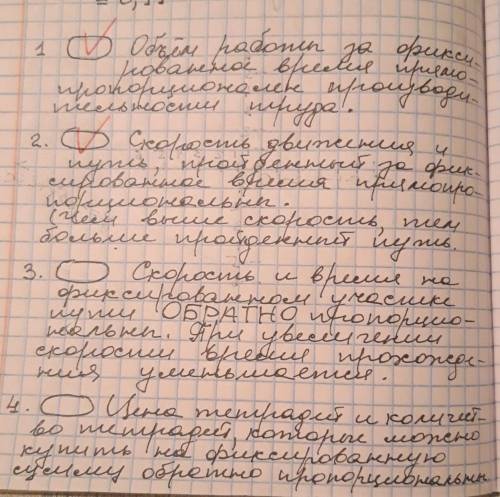 1 Объём работы за фикси-
рованное время прямо-
пропорционален производи-
тельности труда.
2. Скорость движения и
путь, пройденный за фик-
сированное время прямопро-
порциональны.
(Чем выше скорость, тем
больше пройденный путь.
3. Скорость и время на
фиксированном участке
пути ОБРАТНО пропорцио-
нальны. При увеличении
скорости время прохожде-
ния уменьшается.
4. Цена тетрадей и количест-
во тетрадей, которые можно
купить на фиксированную
сумму обратно пропорциональны